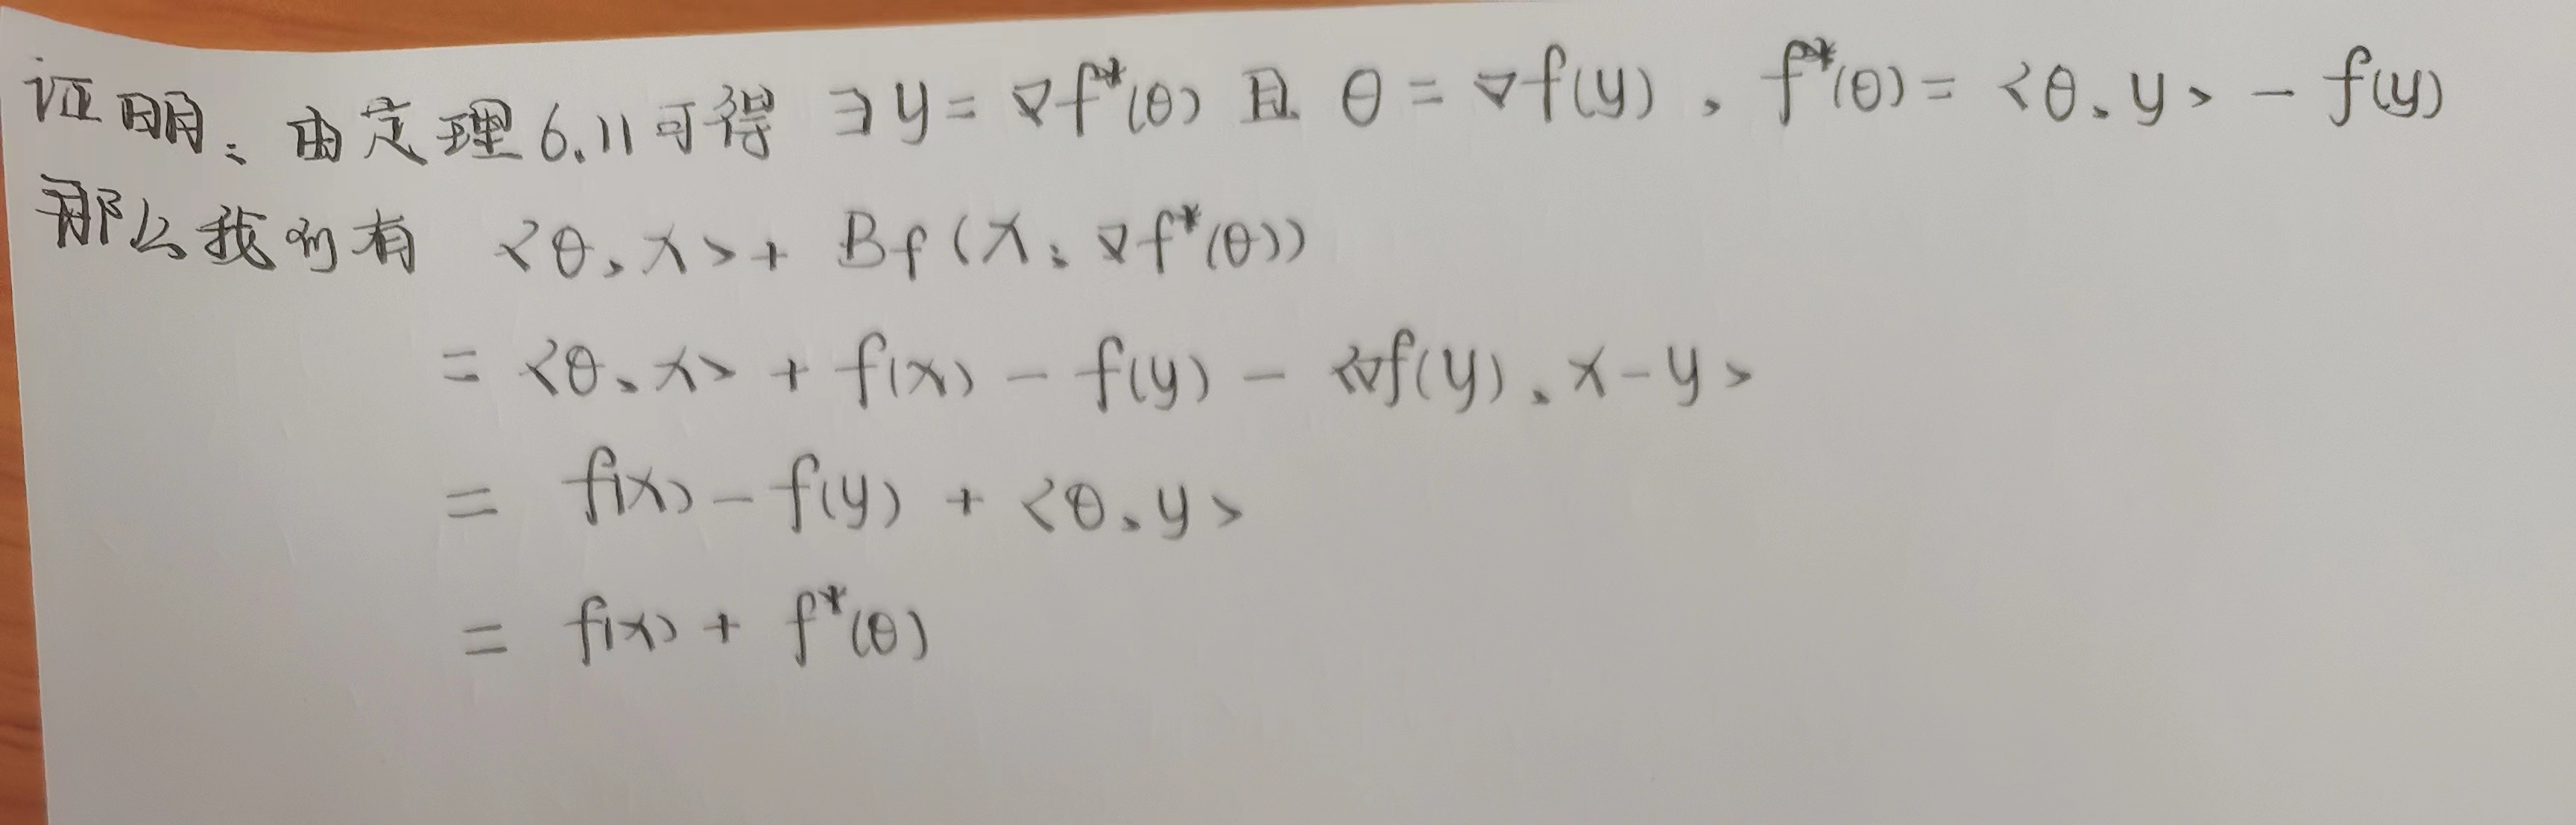 证明：由定理6.11可得 ∃y = ∇f*(θ) 且 θ = ∇f(y)，f*(θ) = <θ、y> - f(y)
那么我们有 <θ、x> + Bf(x; ∇f*(θ))
= <θ、x> + f(x) - f(y) - <∇f(y)、x-y>
= f(x) - f(y) + <θ、y>
= f(x) + f*(θ)